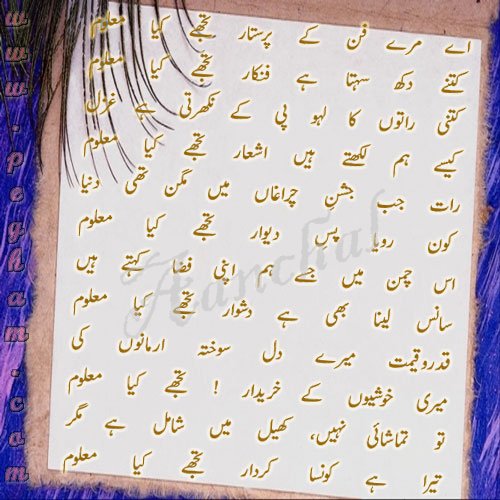 اے مرے فن کے پرستار تجھے کیا معلوم
کتنے دکھ سہتا ہے فنکار تجھے کیا معلوم
کتنی راتوں کا لہو پی کے نکھرتی ہے غزل
کیسے ہم لکھتے ہیں اشعار تجھے کیا معلوم
رات جب جشنِ چراغاں میں مگن تھی دنیا
کون رویا پسِ دیوار تجھے کیا معلوم
اس چمن میں جسے ہم اپنی فضا کہتے ہیں
سانس لینا بھی ہے دشوار تجھے کیا معلوم
قدروقیمت میرے دل سوختہ ارمانوں کی
میری خوشیوں کے خریدار ! تجھے کیا معلوم
تو تماشائی نہیں، کھیل میں شامل ہے مگر
تیرا ہے کونسا کردار تجھے کیا معلوم
Aanchal
www.pegham.com